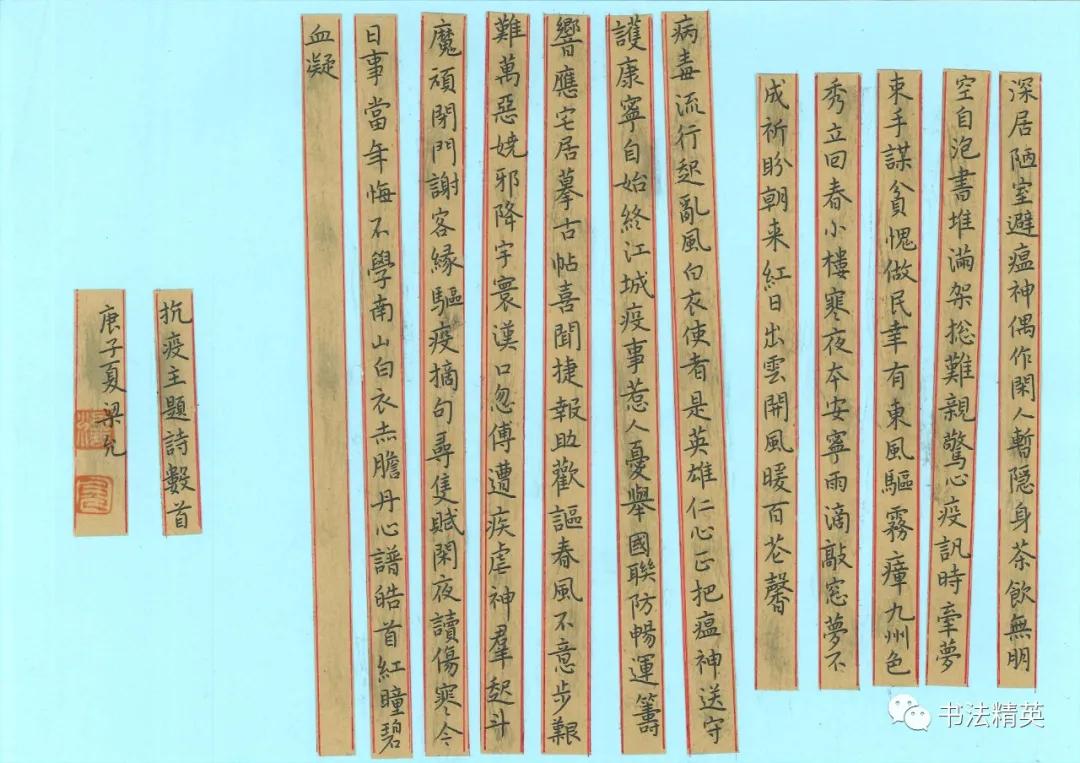 深居陋室避瘟神偶作閑人暫隱身茶飲無朋
空自泡書堆滿架総難親驚心疫訊時牽夢
束手謀貧愧做民幸有東風驅霧瘴九州色
秀立回春小樓寒夜本安寧雨滴敲窓夢不
成祈盼朝来紅日出雲開風暖百花馨
病毒流行起亂風白衣使者是英雄仁心正把瘟神送守
護康寧自始終江城疫事惹人憂舉國聯防暢運籌
響應宅居摹古帖喜聞捷報助歡謳春風不意步艱
難萬惡嬈邪降宇寰漢口忽傅遭疾虐神羣起斗
魔頑閉門謝客緣驅疫摘句尋隻賦閑夜讀傷寒今
日事當年悔不學南山白衣赤膽丹心譜皓首紅瞳碧
血凝
抗疫主題詩數首
庚子夏梁允
书法精英